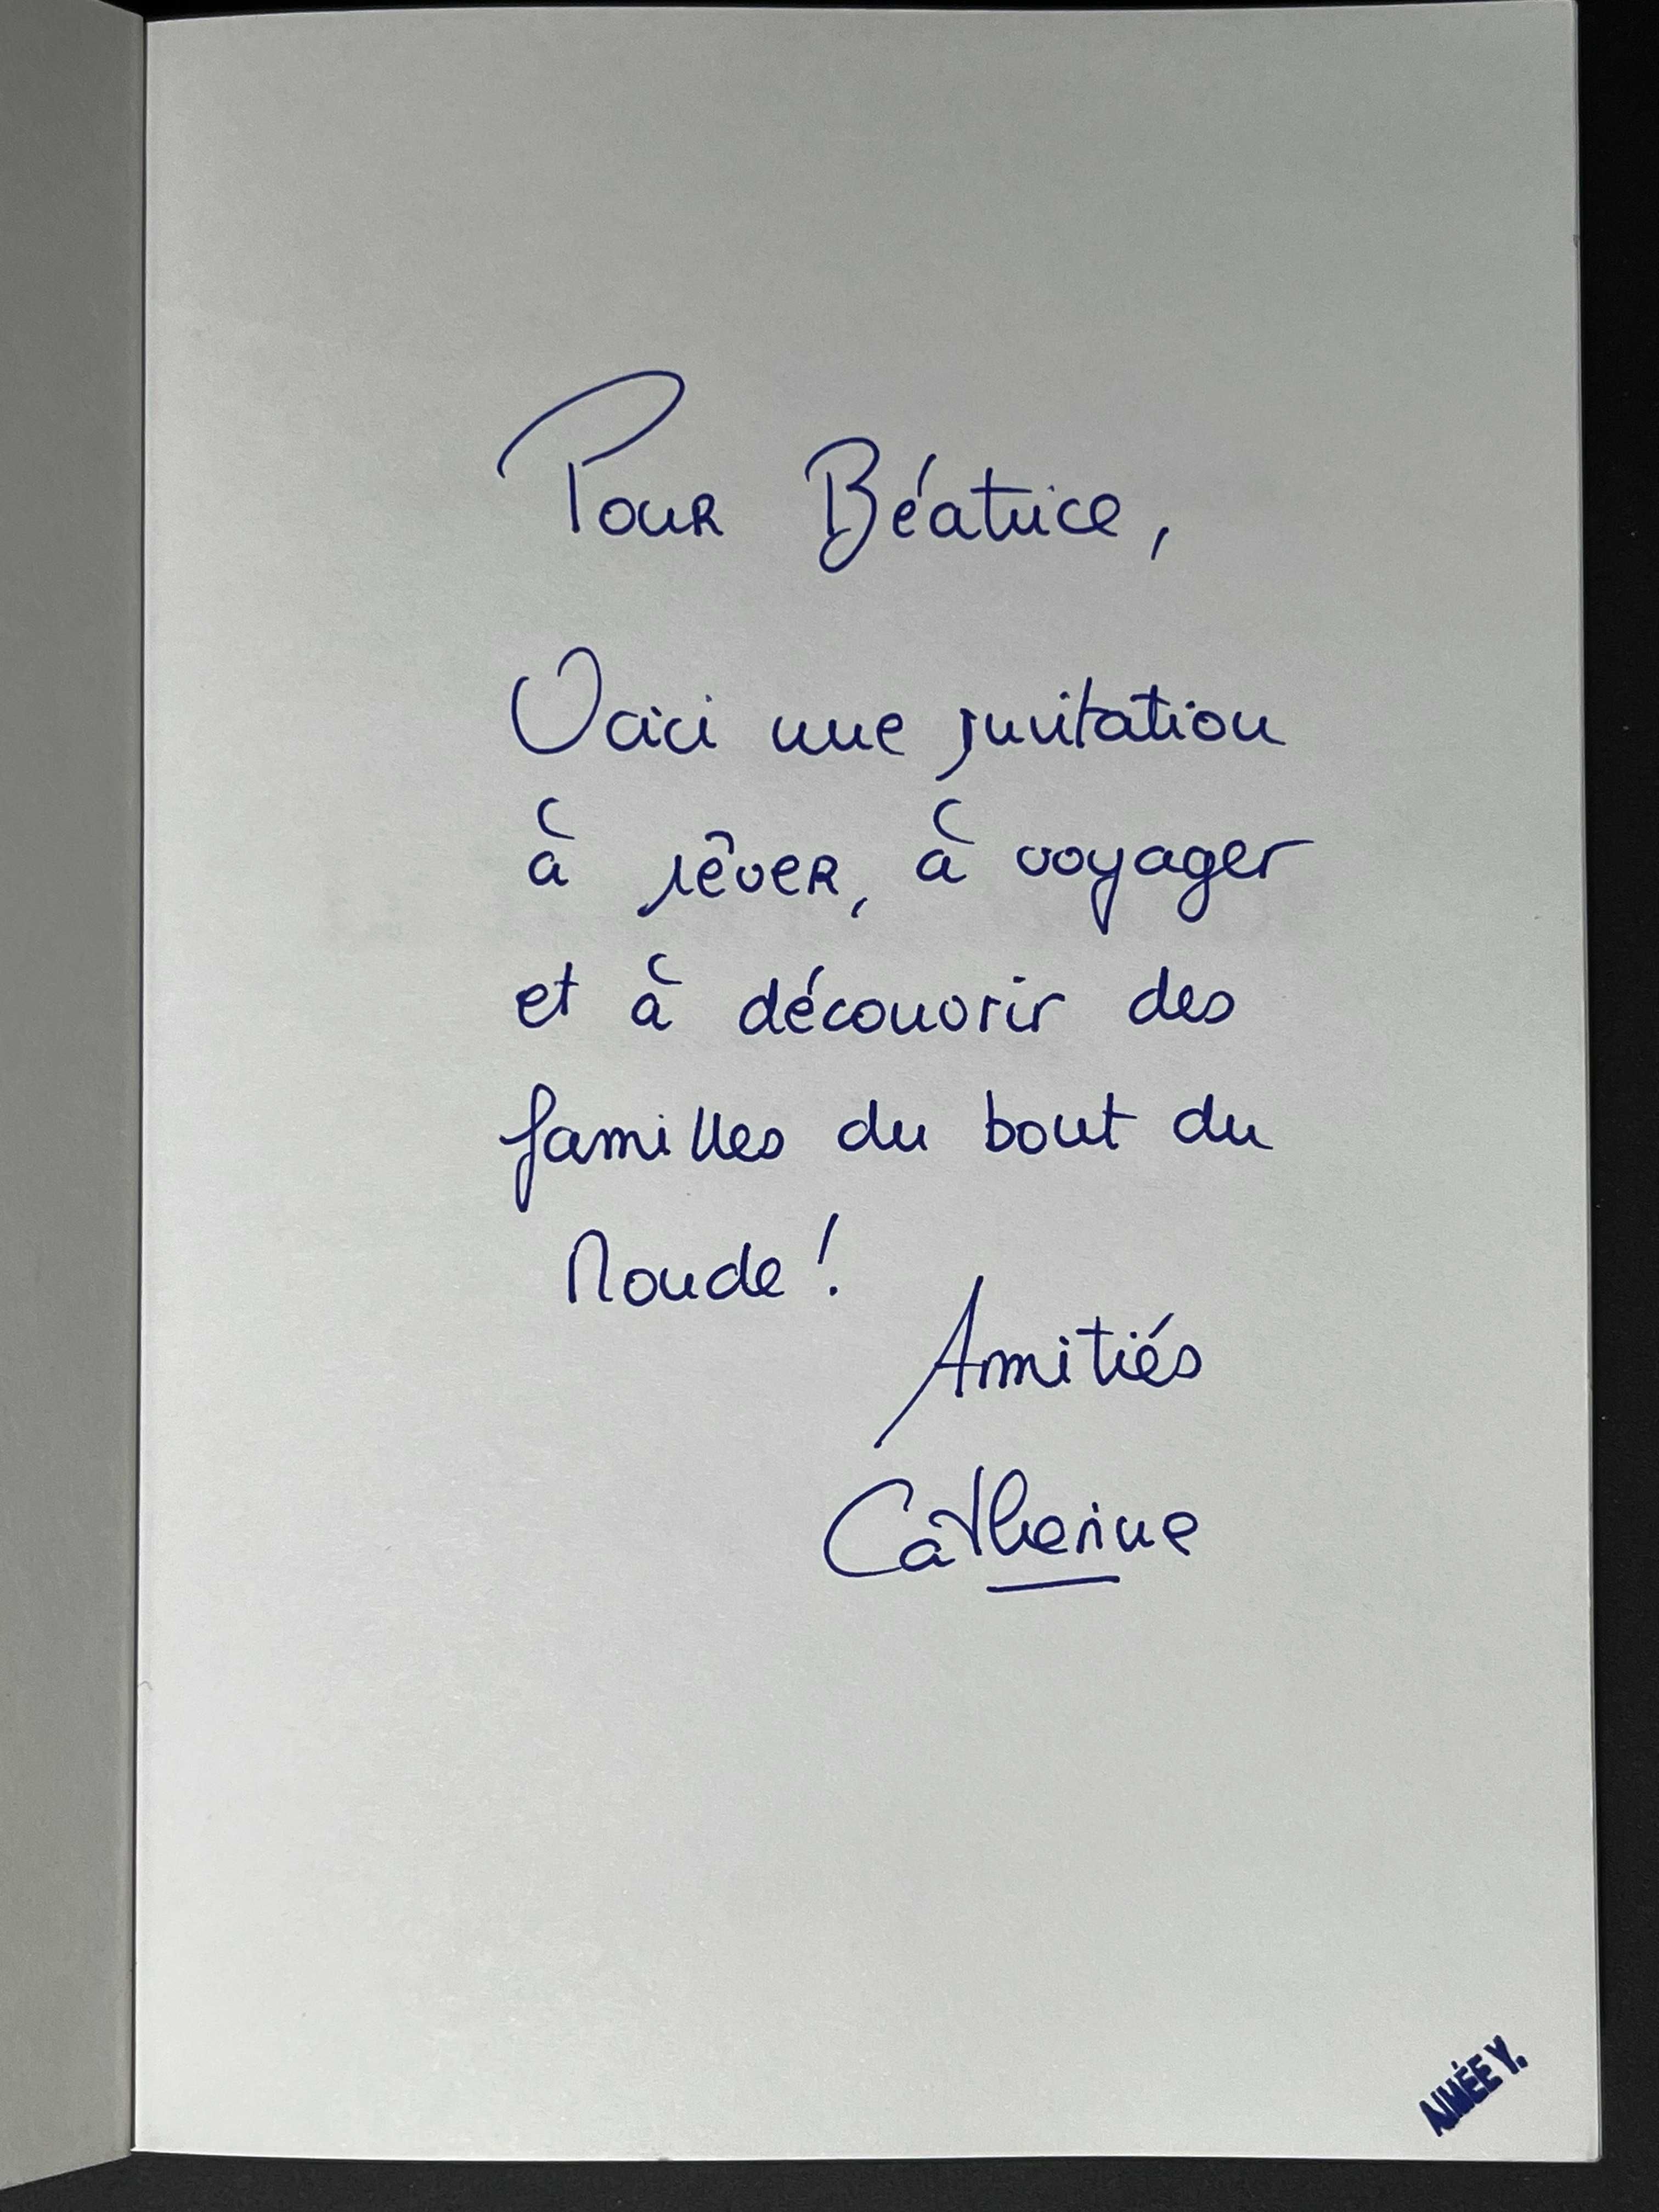 Pour Béatrice,
Voici une invitation
à rêver, à voyager
et à découvrir des
familles du bout du
Monde !
Amitiés
Catherine
AIMÉE Y.